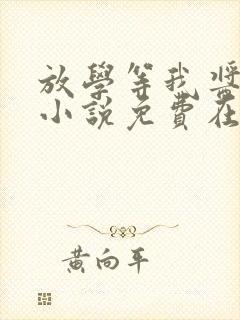 放學等我將
小說免費在
黃向平